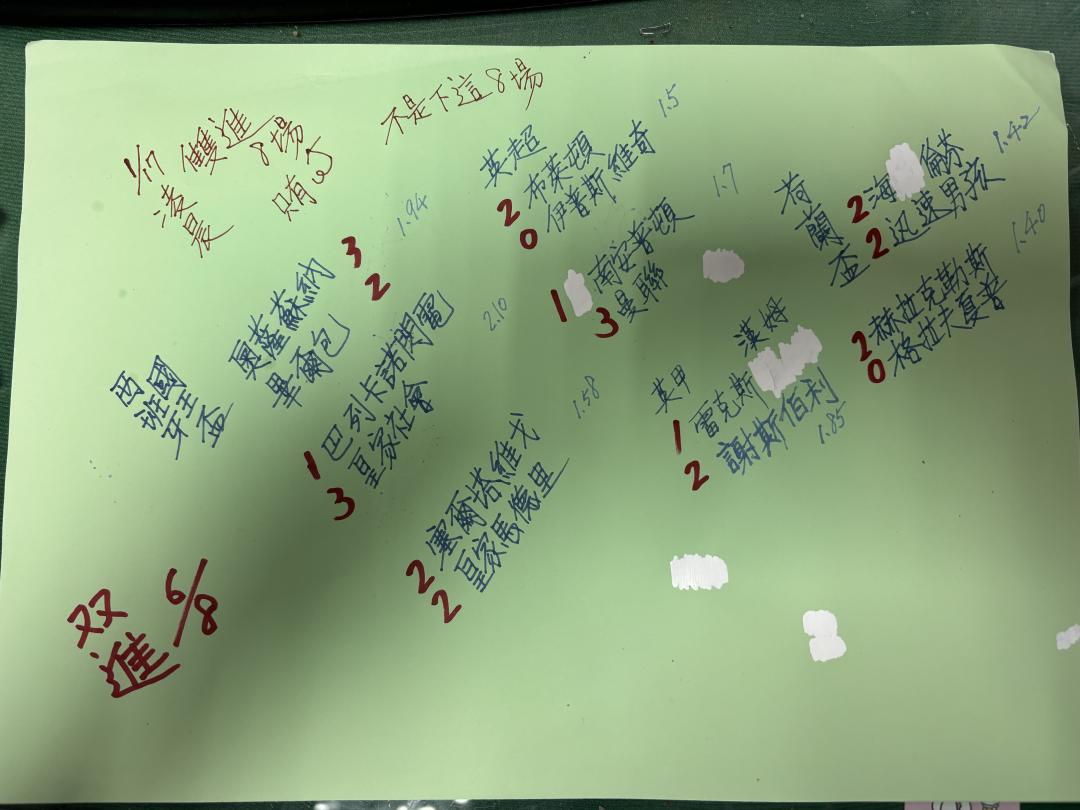 1/17
凌晨
雙進
8場
賭ω
不是下這8場
西班牙
國王盃
奧薩蘇納 3
畢爾包 2
1.94
1 巴列卡諾閃電
3 皇家社會
2.10
2 塞爾塔維戈
2 皇家馬德里
1.58
英超
2 布萊頓
0 伊普斯維奇
1.5
1 南安普頓
3 曼聯
1.7
英甲
1 雷克斯漢姆
2 謝斯伯利
1.85
荷蘭盃
2 海倫芬
2 迅速男孩
1.42
2 赫拉克勒斯
0 格拉夫夏普
1.40
双進 6/8